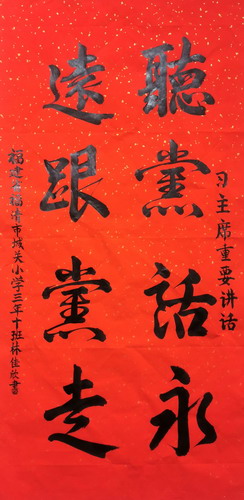 习主席重要讲话
聽黨話永
遠跟黨走
福建省福清市城关小学三年十班林佳欣書